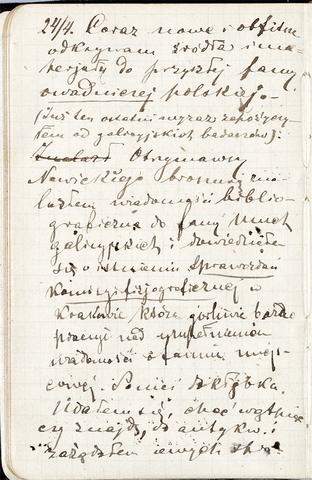 24/4. Coraz nowe i obfite
odkrywam źródła i ma-
terjały do przyszłej fauny
owadniczej polskiej.-
(Już ten ostatni wyraz zapożyczy-
łem od galicyjskich badaczów):
Otrzymawszy
Nowickiego broszurę zna-
lazłem wiadomości biblio-
graficzne do fauny much
galicyjskich i dowiedziałem
się o istnieniu Sprawozdań
Komisyi fizyograficznej w
Krakowie, która gorliwie bardzo
pracuje nad uzupełnieniem
wiadomości o faunie miejs-
cowej.
Udałem się, choć wątpię
czy znajdę, do antykw. i
zażądałem